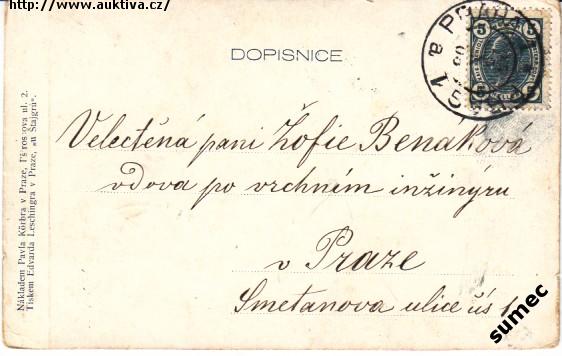 http://www.auktiva.cz/
DOPISNICE
5 5
5 5
1 a
Velectěná paní Žofie Benaková
vdova po vrchním inžinýru
v Praze
Smetanova ulice čís 1
Nákladem Pavla Körbra v Praze, ul. 2.
Tiskem Edvarda Leschingra v Praze, „u Štajgrů“.
sumec